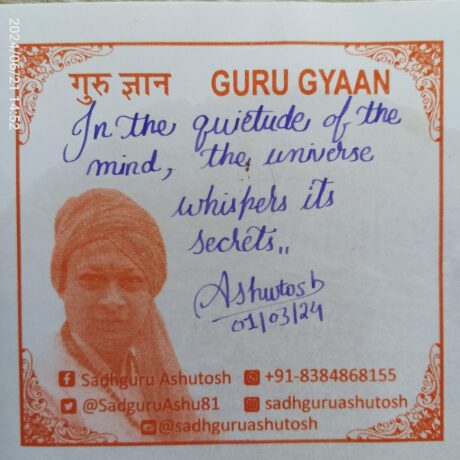 2024/06/21 14:52
गुरु ज्ञान GURU GYAAN
In the quietude of the
mind, the universe
whispers its
secrets,,
Ashutosh
01/03/24
Sadhguru Ashutosh +91-8384868155
@SadguruAshu81 sadhguruashutosh
@sadhguruashutosh